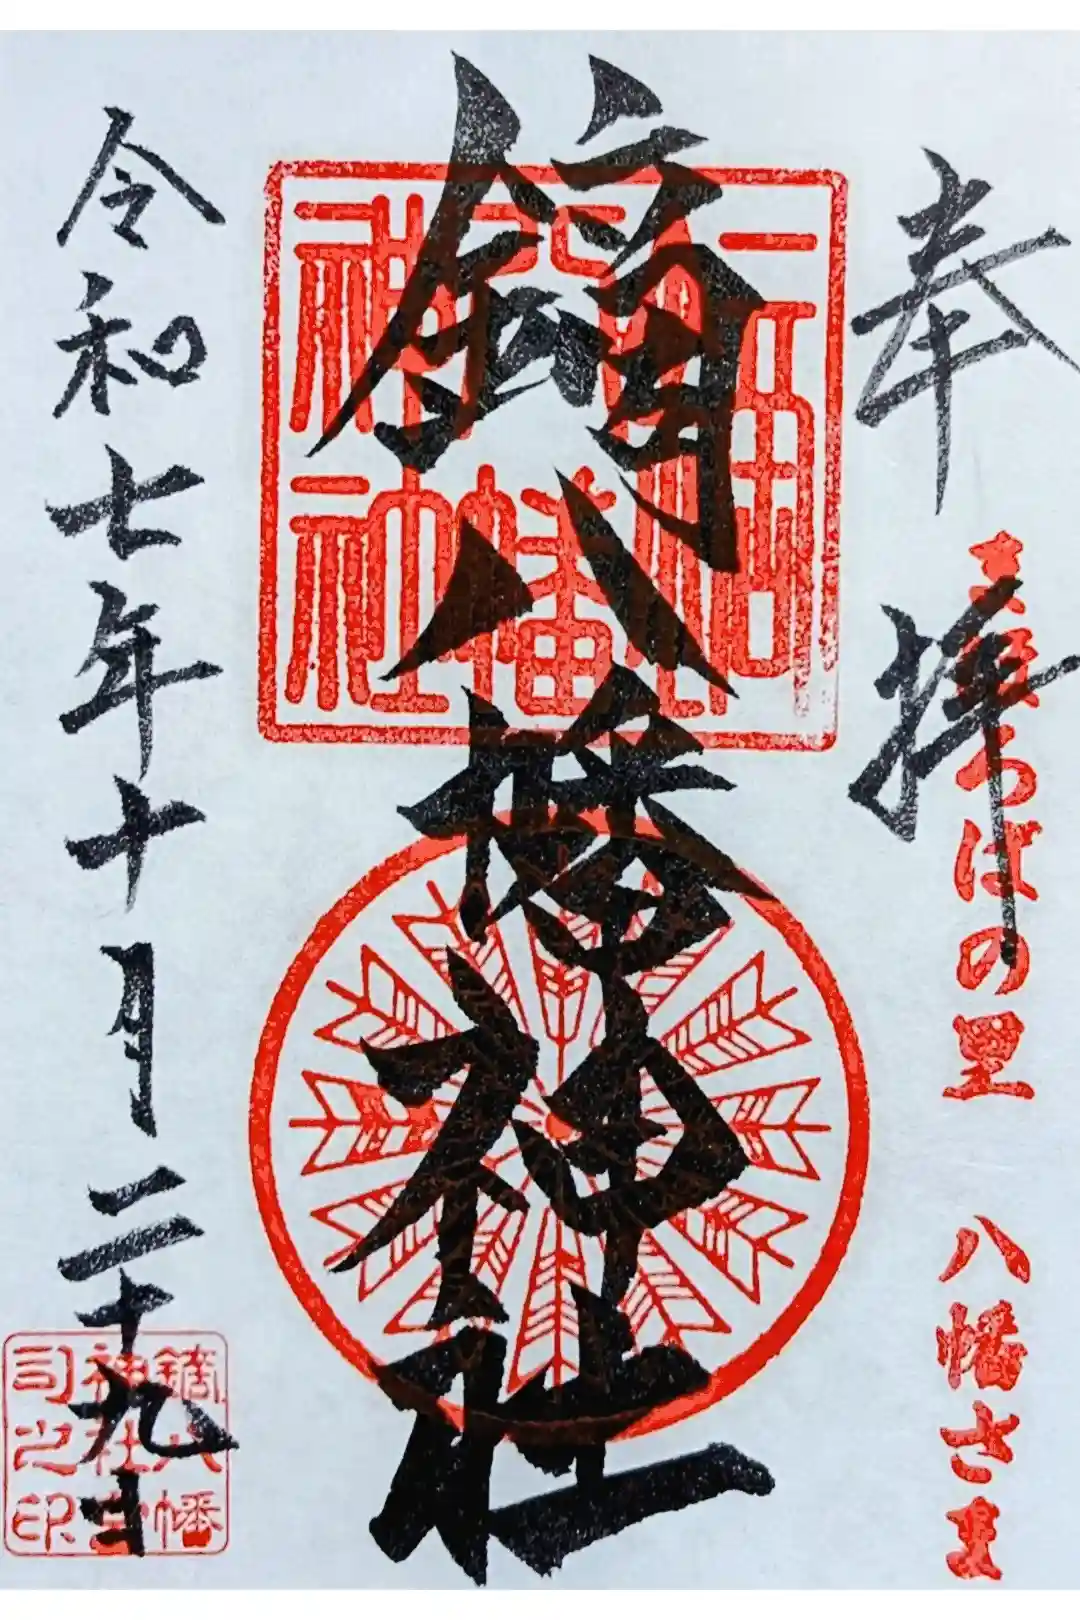 奉拝
まほろばの里 八幡さま
鏑八幡神社
八幡
神社
令和七年十月二十九日
鏑八幡
神社宮
司之印